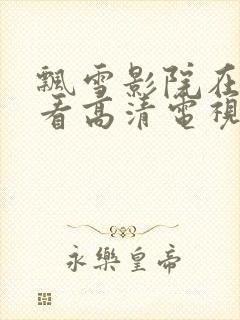 飄雪影院在
看高清電視
永樂皇帝